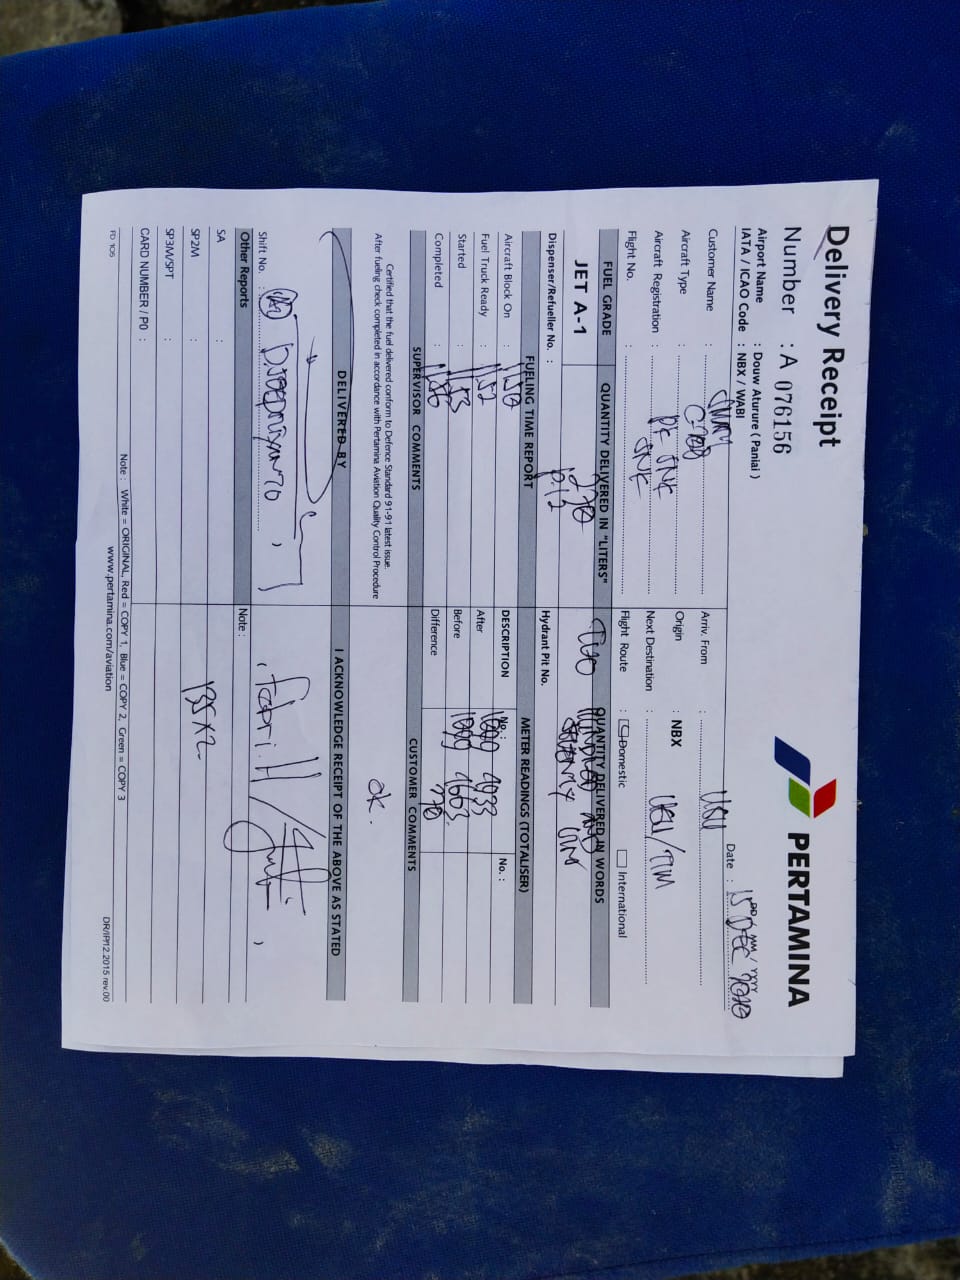 Delivery Receipt
PERTAMINA
Number : A 076156
Date : DD / MM / YYYY
15 DEC
Airport Name : Douw Aturure ( Paniai )
IATA / ICAO Code : NBX / WABI
Customer Name :
Arriv. From :
Aircraft Type :
Origin : NBX
Aircraft Registration : PK SNK
Next Destination : / TIM
Flight No. : SNK
Flight Route : Domestic International
FUEL GRADE QUANTITY DELIVERED IN "LITERS" QUANTITY DELIVERED IN WORDS
JET A-1 270 Two HUNDRED AND SEVENTY
Dispenser/Refueller No. : P.12
Hydrant Pit No.
FUELING TIME REPORT METER READINGS (TOTALISER)
Aircraft Block On : 11.50
DESCRIPTION No. : No. :
Fuel Truck Ready : 11.52
After 1099 4933
Started : 11.53
Before 1099 4663
Completed : 11.56
Difference 270
SUPERVISOR COMMENTS CUSTOMER COMMENTS
Certified that the fuel delivered conform to Defence Standard 91-91 latest issue.
After fueling check completed in accordance with Pertamina Aviation Quality Control Procedure
OK.
DELIVERED BY I ACKNOWLEDGE RECEIPT OF THE ABOVE AS STATED
Shift No. :
Febri. H /
Other Reports Note :
SA :
SP2M :
135 X 2
SP3M/SPT :
CARD NUMBER / PO :
Note : White = ORIGINAL, Red = COPY 1, Blue = COPY 2, Green = COPY 3
FD 106 www.pertamina.com/aviation DR/IPf12.2015 rev.00